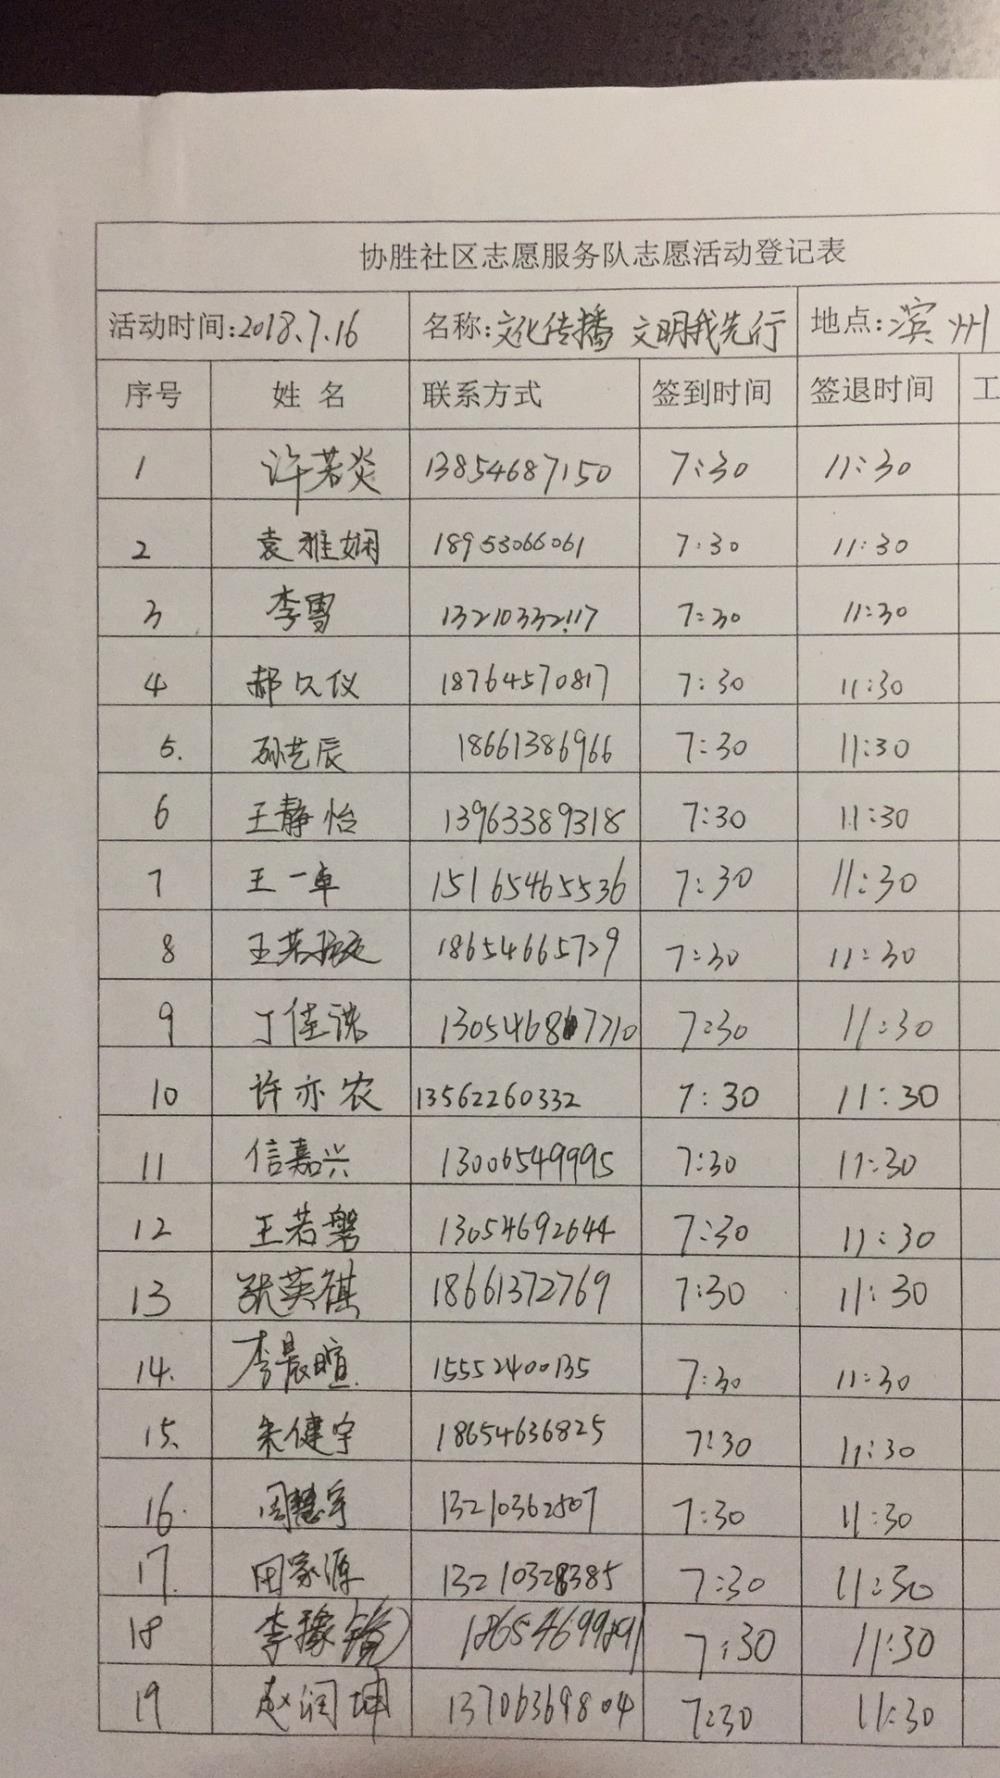 协胜社区志愿服务队志愿活动登记表
活动时间:2018.7.16 名称:文化传播 文明我先行 地点:滨州
序号 姓名 联系方式 签到时间 签退时间 工
1 许若炎 13854687150 7:30 11:30
2 袁雅娴 18953066061 7:30 11:30
3 李雪 13210332117 7:30 11:30
4 郝久仪 18764570817 7:30 11:30
5. 孙艺辰 18661386966 7:30 11:30
6 王静怡 13963389318 7:30 11:30
7 王一卓 15165465536 7:30 11:30
8 王若 18654665729 7:30 11:30
9 丁佳 7:30 11:30
10 许亦农 13562260332 7:30 11:30
11 信嘉兴 13006549995 7:30 11:30
12 王若磐 13054692644 7:30 11:30
13 张英祺 18661372769 7:30 11:30
14. 李晨暄 15552400135 7:30 11:30
15. 朱健宇 18654636825 7:30 11:30
16. 周慧宇 13210362507 7:30 11:30
17. 田家源 13210328385 7:30 11:30
18 李豫 18654699891 7:30 11:30
19 赵润坤 13706369804 7:30 11:30